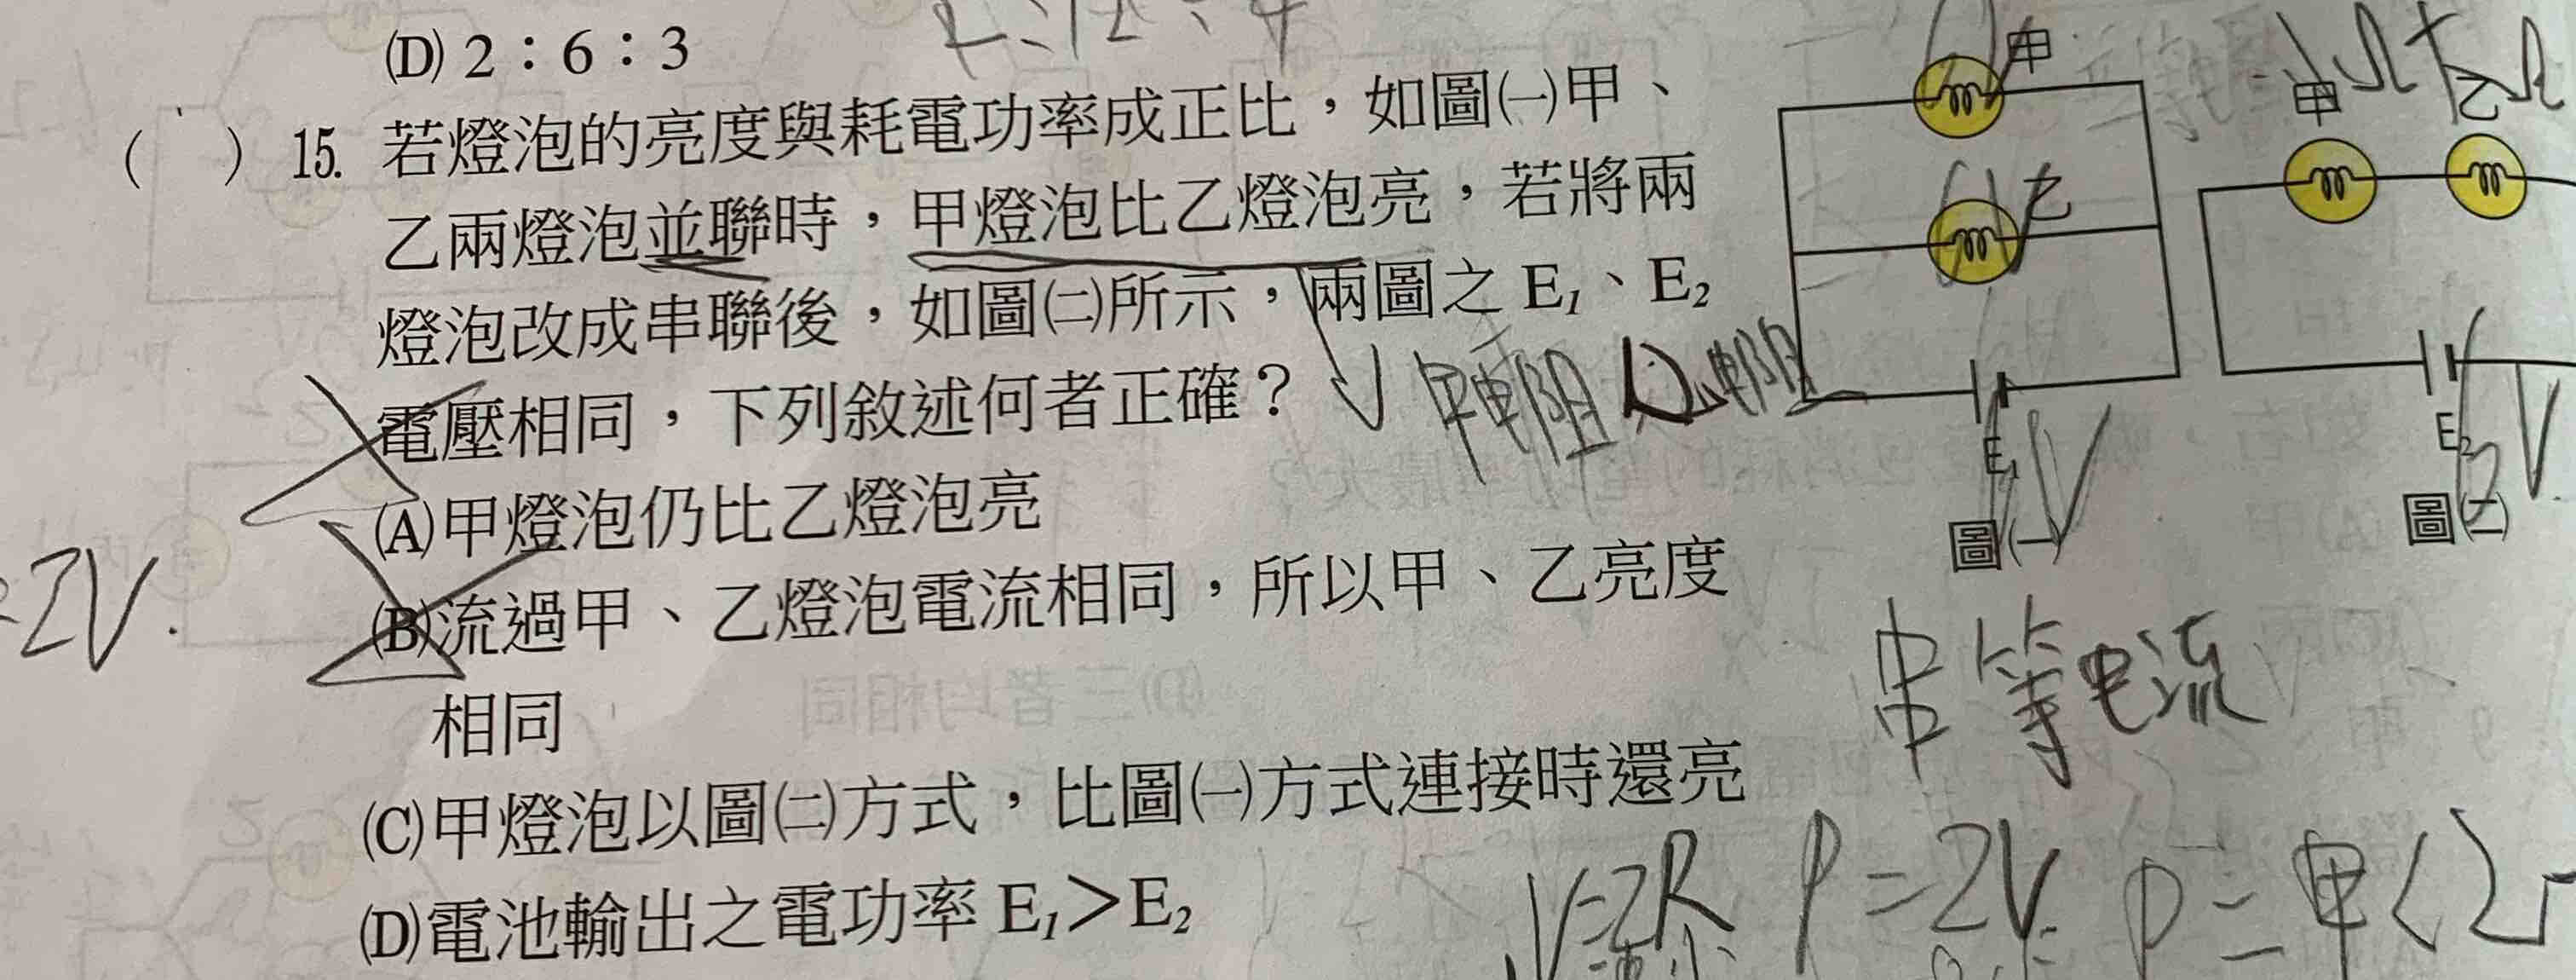 (D) 2：6：3
(　) 15. 若燈泡的亮度與耗電功率成正比，如圖㈠甲、
乙兩燈泡並聯時，甲燈泡比乙燈泡亮，若將兩
燈泡改成串聯後，如圖㈡所示，兩圖之 E₁、E₂
電壓相同，下列敘述何者正確？
(A)甲燈泡仍比乙燈泡亮
(B)流過甲、乙燈泡電流相同，所以甲、乙亮度
相同
(C)甲燈泡以圖㈡方式，比圖㈠方式連接時還亮
(D)電池輸出之電功率 E₁＞E₂
甲
乙
E₁
圖(一)
甲
乙
E₂
圖(二)
串等电流
V=IR
P=IV